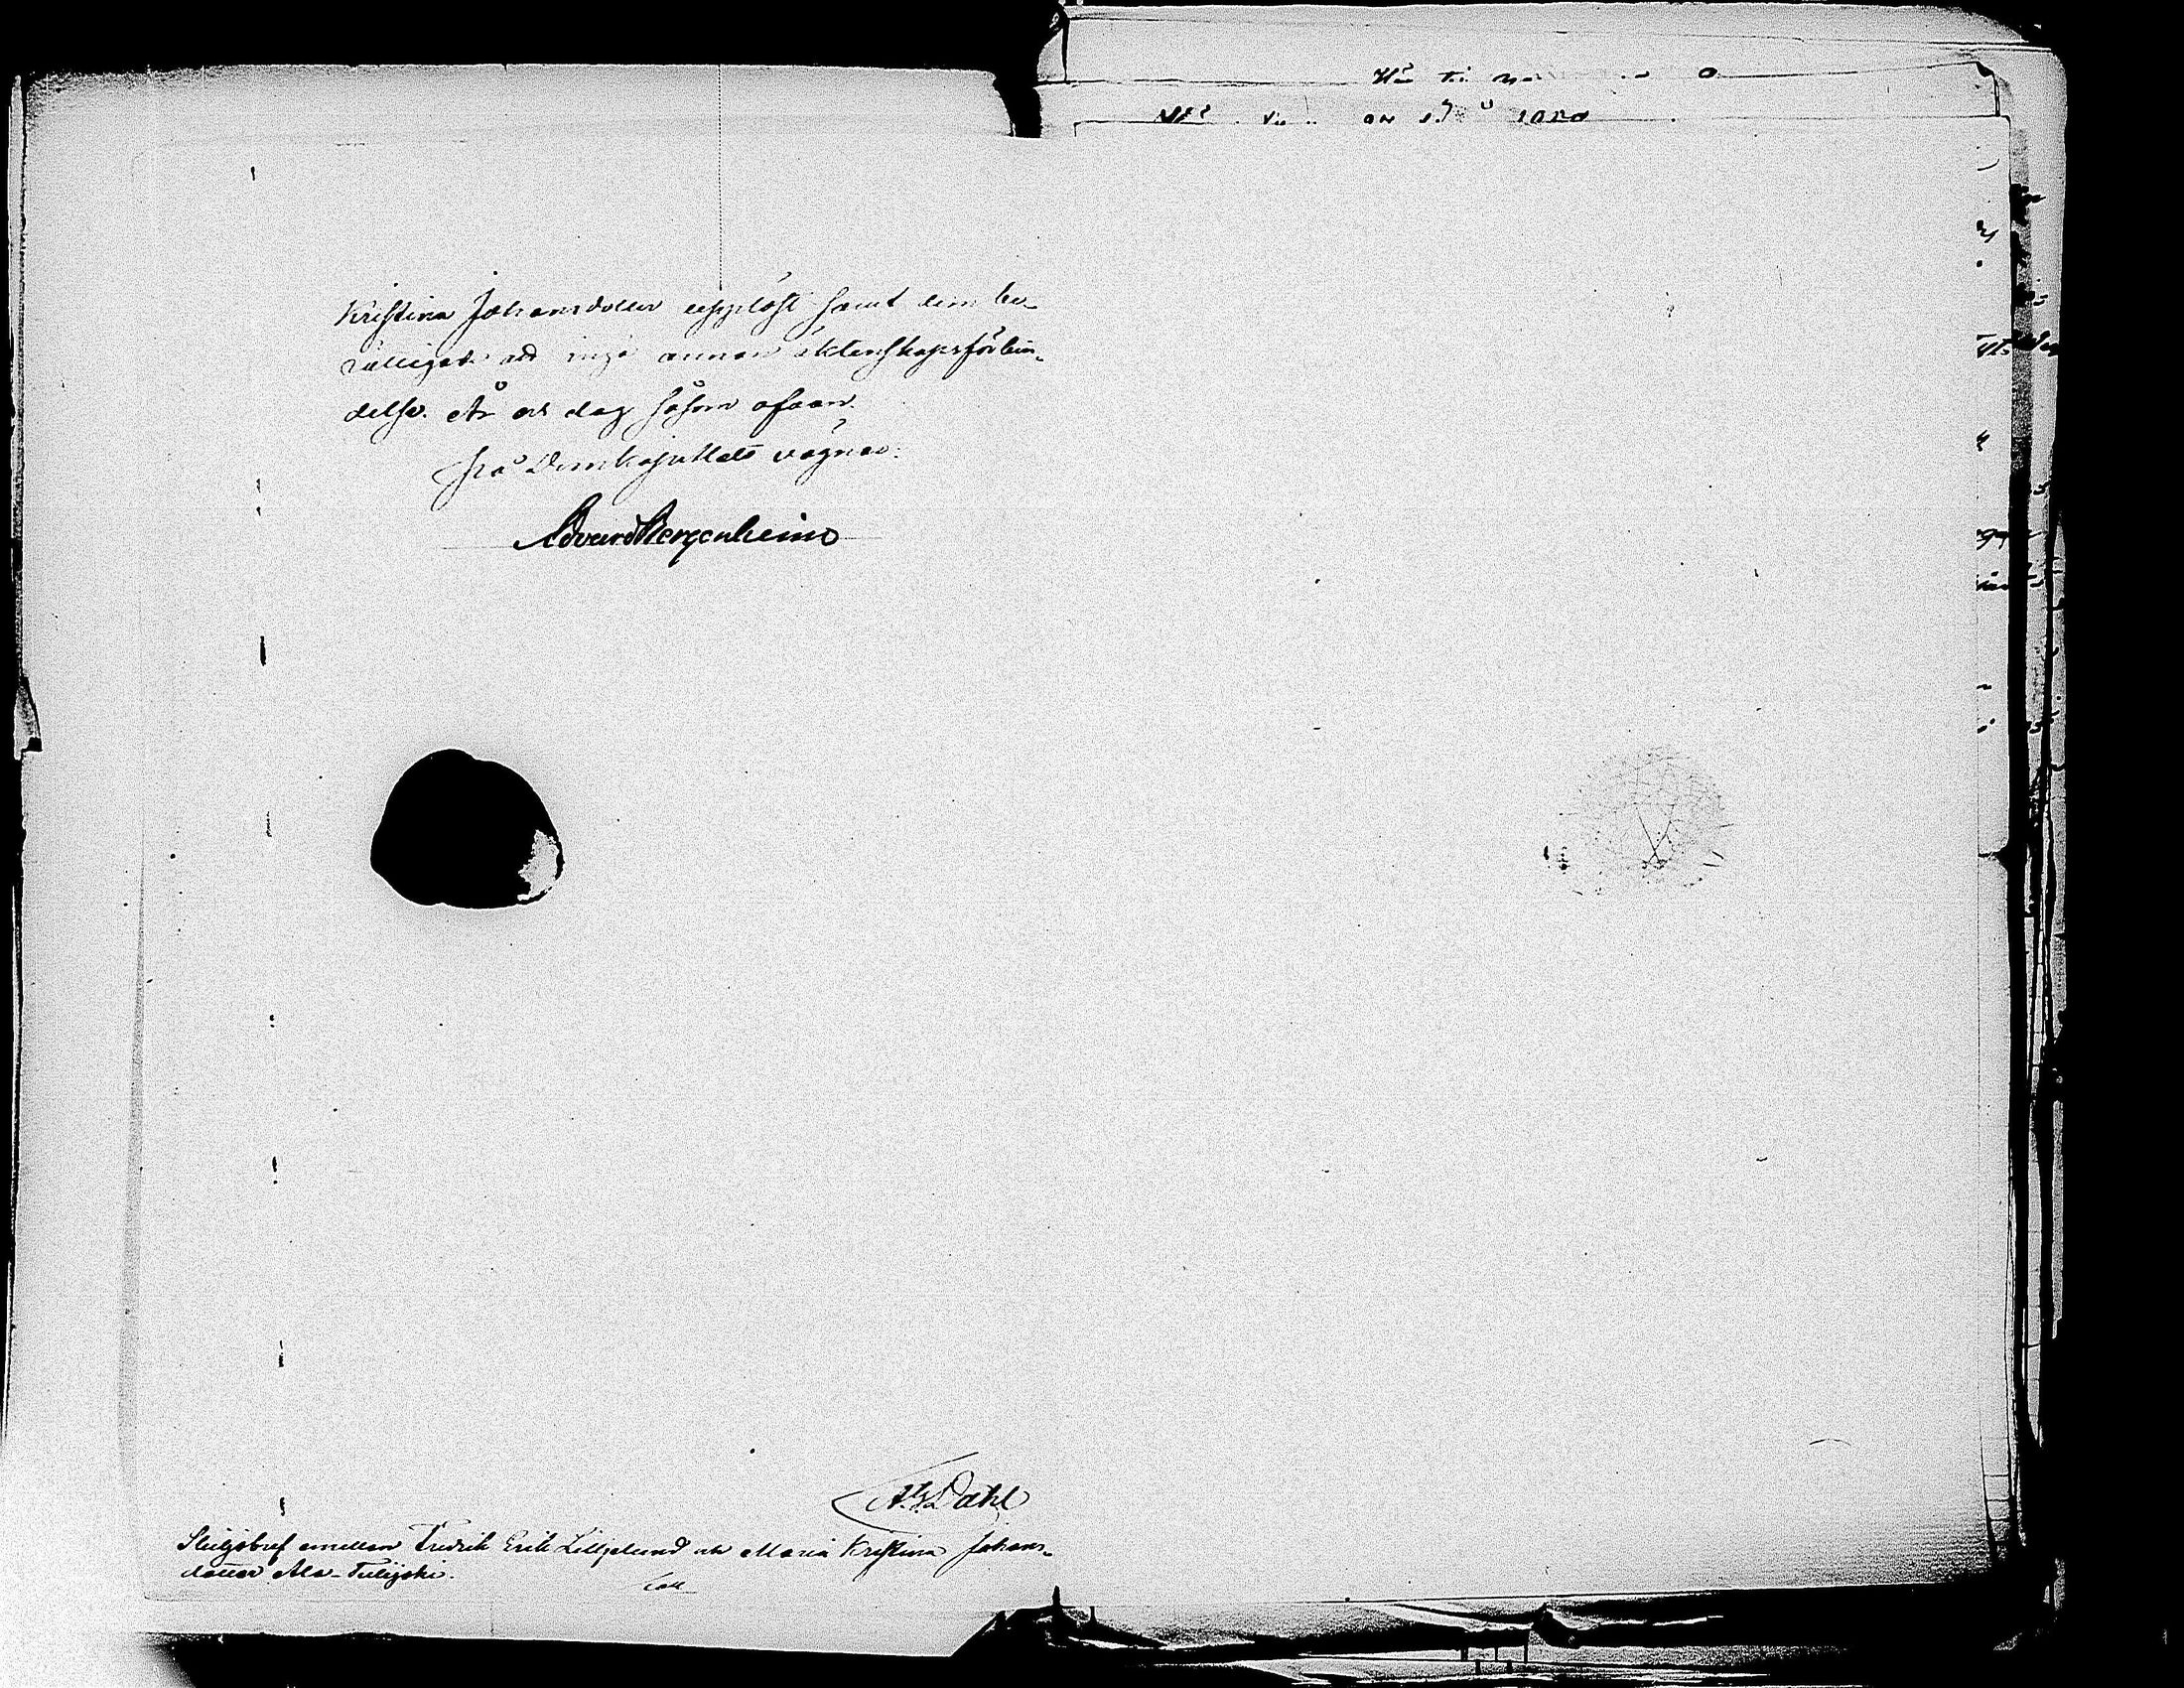 Kristina Johansdotter upplöst samt dem be-
rättigade att ingå annan äktenskapsförbin-
delse. År och dag såsom ofvan.
På Domkapitlets vägnar:
Edvard Bergenheim
A. G. Dahl
Skiljobref emellan Fredrik Erik Liljelund och Maria Kristina Johans-
dotter Ala-Tulijoki.